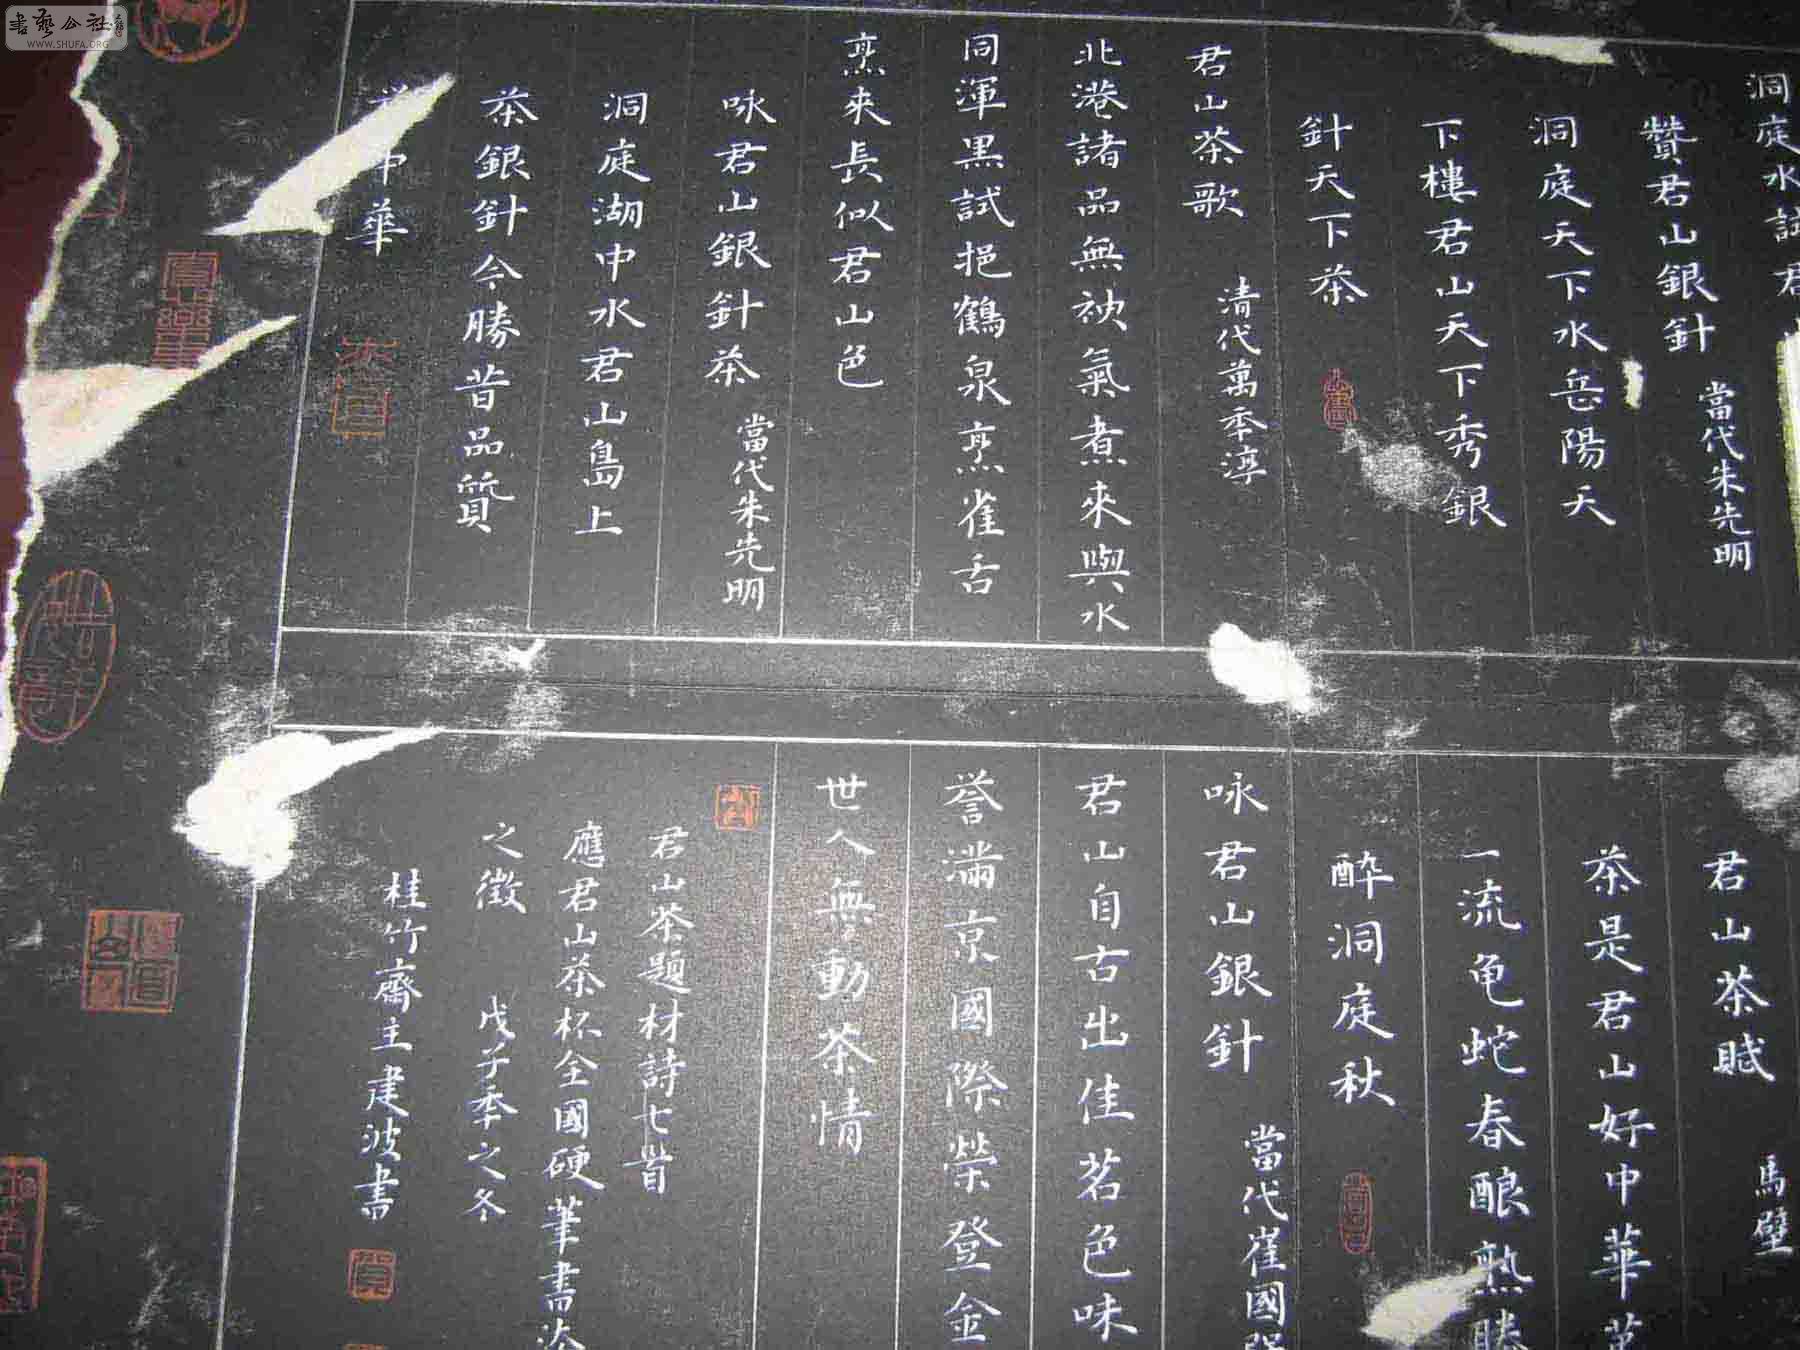 書藝公社
WWW.SHUFA.ORG
洞庭水試君
贊君山銀針 當代朱先明
洞庭天下水岳陽天
下樓君山天下秀銀
針天下茶
君山茶歌 清代萬年淳
北港諸品無袂氣煮來與水
同渾黑試挹鶴泉烹雀舌
烹來長似君山色
咏君山銀針茶 當代朱先明
洞庭湖中水君山島上
茶銀針今勝昔品質
中華
君山茶賦 馬壁
茶是君山好中華
一流龟蛇春酿熟勝
醉洞庭秋
咏君山銀針 當代崔國
君山自古出佳茗色味
誉滿京國際榮登金
世人無動茶情
君山茶題材詩七首
應君山茶杯全國硬筆書法
之徵 戊子年之冬
桂竹齋主建波書